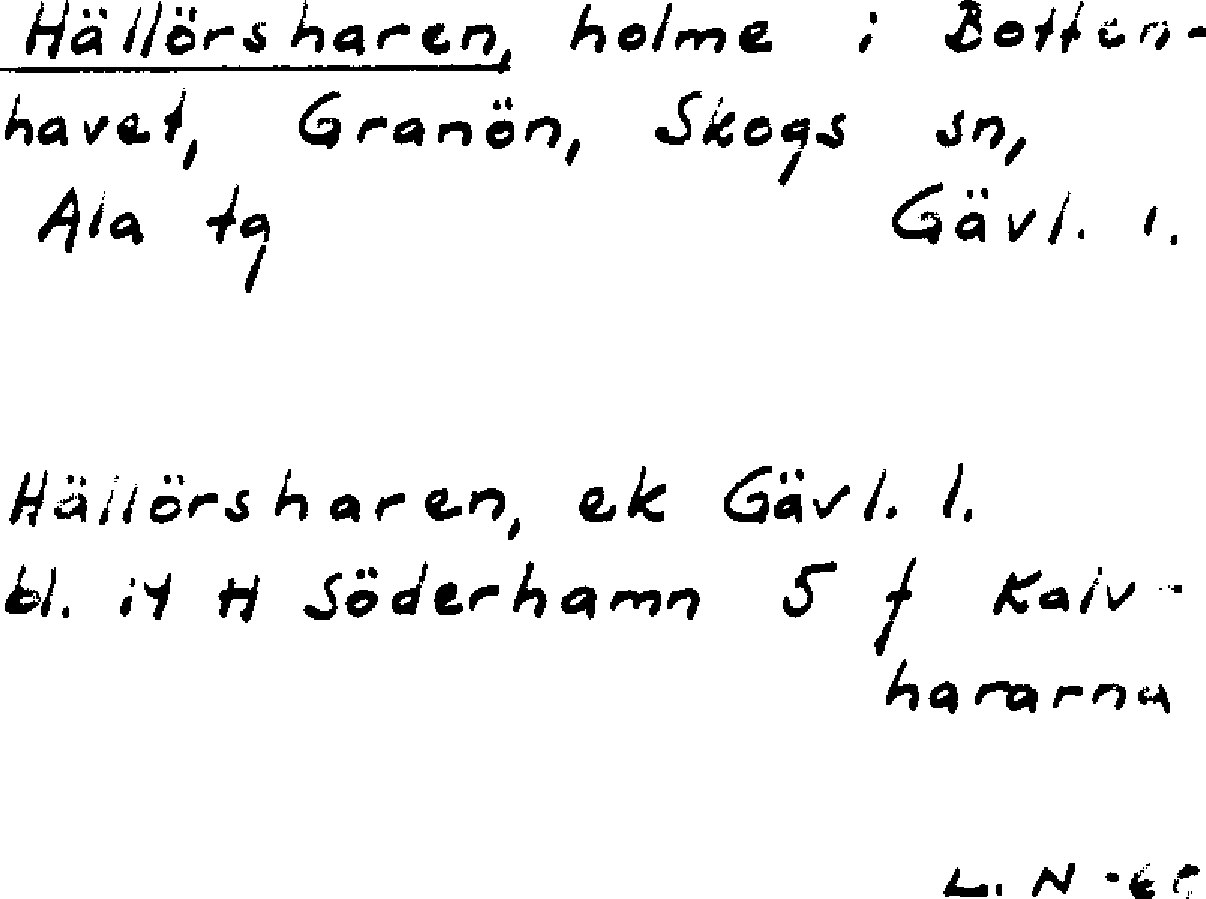 Hällörsharen, holme i Botten-
havet, Granön, Skogs sn,
Ala tg Gävl. l.
Hällörsharen, ek Gävl. l.
bl. 14 H Söderhamn 5 f Kalv-
hararna
L. N